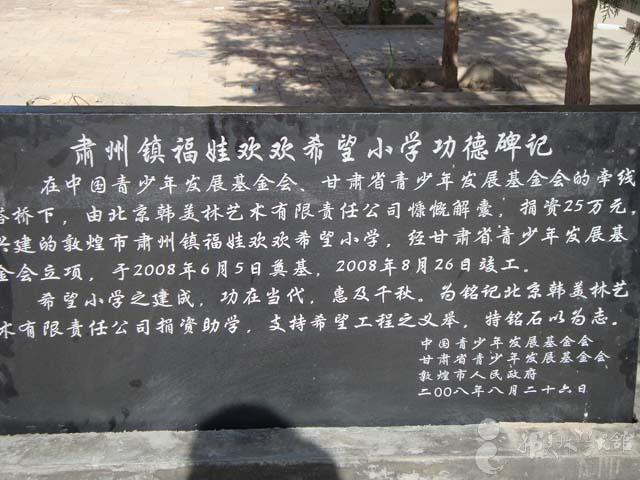 肃州镇福娃欢欢希望小学功德碑记
在中国青少年发展基金会、甘肃省青少年发展基金会的牵线
搭桥下，由北京韩美林艺术有限责任公司慷慨解囊，捐资25万元，
兴建的敦煌市肃州镇福娃欢欢希望小学，经甘肃省青少年发展基
金会立项，于2008年6月5日奠基，2008年8月26日竣工。
希望小学之建成，功在当代，惠及千秋。为铭记北京韩美林艺
术有限责任公司捐资助学，支持希望工程之义举，特铭石以为志。
中国青少年发展基金会
甘肃省青少年发展基金会
敦煌市人民政府
二〇〇八年八月二十六日